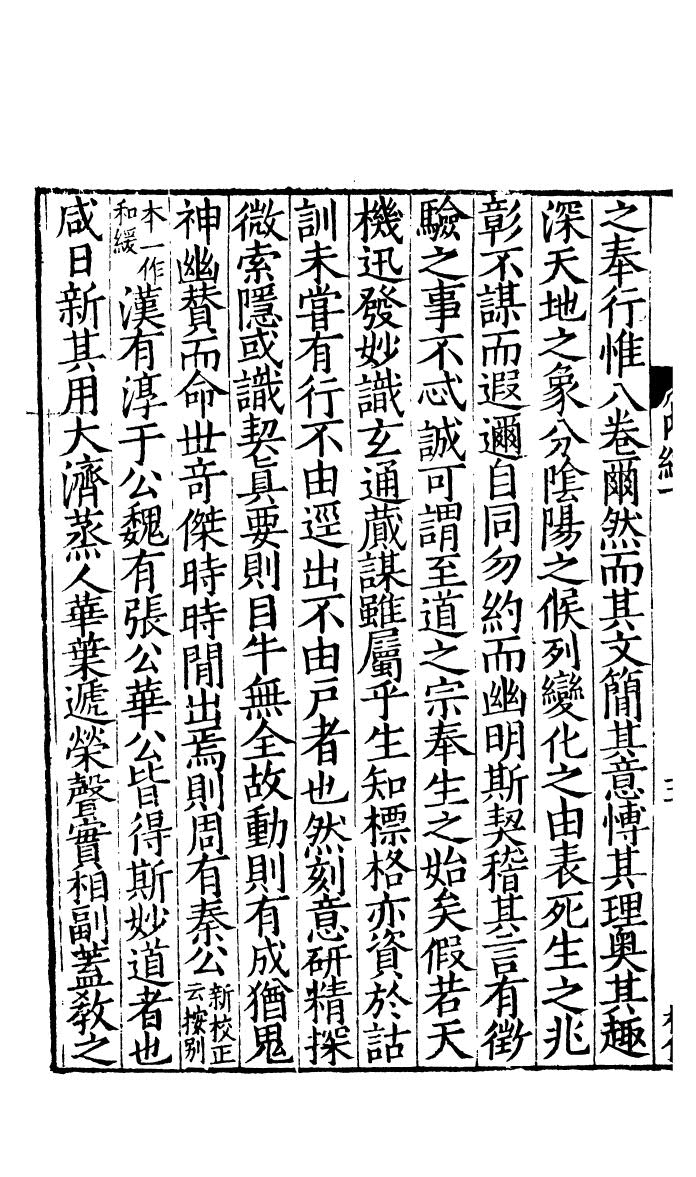 之奉行惟八卷爾然而其文簡其意愽其理奥其趣
深天地之象分陰陽之候列變化之由表死生之兆
彰不謀而遐邇自同勿約而幽明斯契稽其言有徵
驗之事不忒誠可謂至道之宗奉生之始矣假若天
機迅發妙識玄通蕆謀雖屬乎生知標格亦資於詁
訓未甞有行不由逕出不由戸者也然刻意研精探
微索隱或識契真要則目牛無全故動則有成猶鬼
神幽賛而命世竒傑時時閒出焉則周有秦公新校正云按别
本一作和緩漢有淳于公魏有張公華公皆得斯妙道者也
咸日新其用大濟蒸人華葉遞榮聲實相副蓋敎之